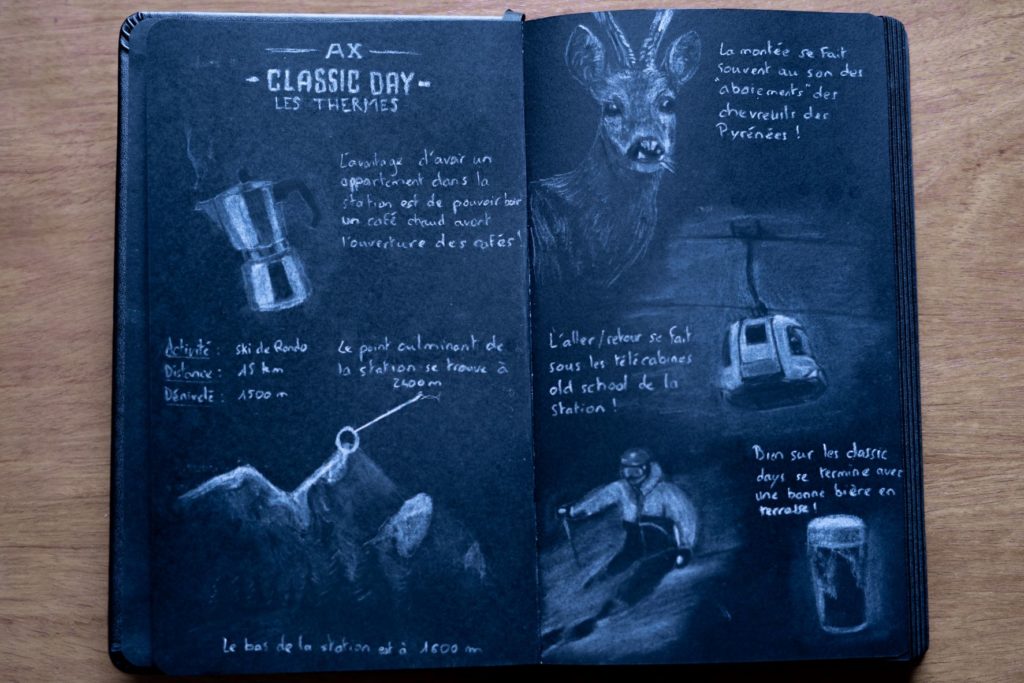 AX
- CLASSIC DAY -
LES THERMES
L'avantage d'avoir un
appartement dans la
station est de pouvoir boir
un café chaud avant
l'ouverture des cafés !
Activité : Ski de Rando
Distance : 15 km
Dénivelé : 1500 m
Le point culminant de
la station se trouve à
2400 m
Le bas de la station est à 1600 m
La montée se fait
souvent au son des
"aboiements" des
chevreuils des
Pyrénées !
L'aller/retour se fait
sous les télécabines
old school de la
station !
sur les classic
days se termine avec
une bonne bière en
terrasse !